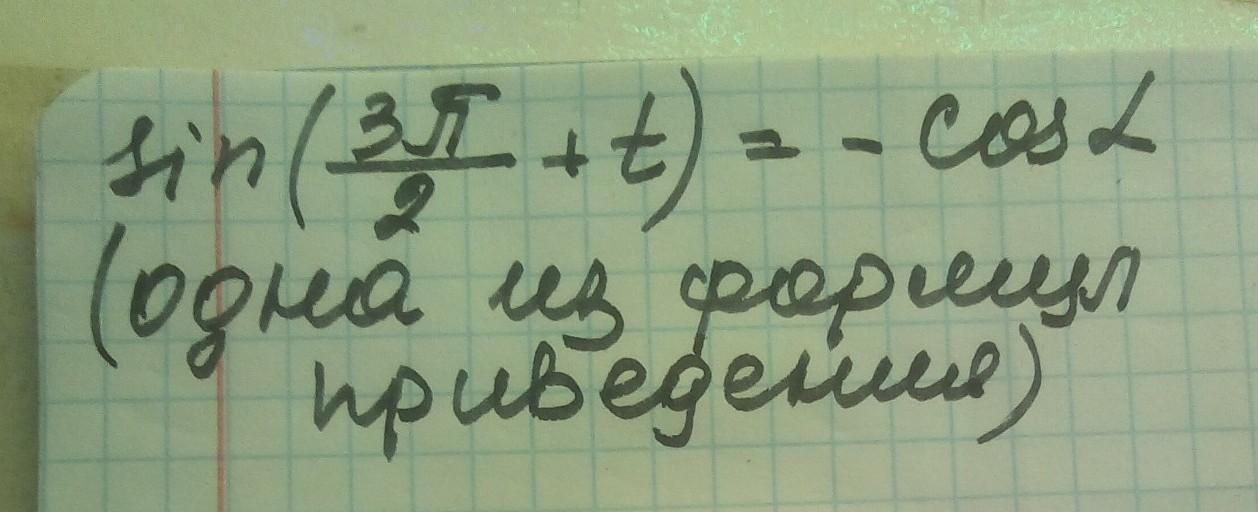 sin(3π/2 + t) = - cos α
(одна из формул
приведения)